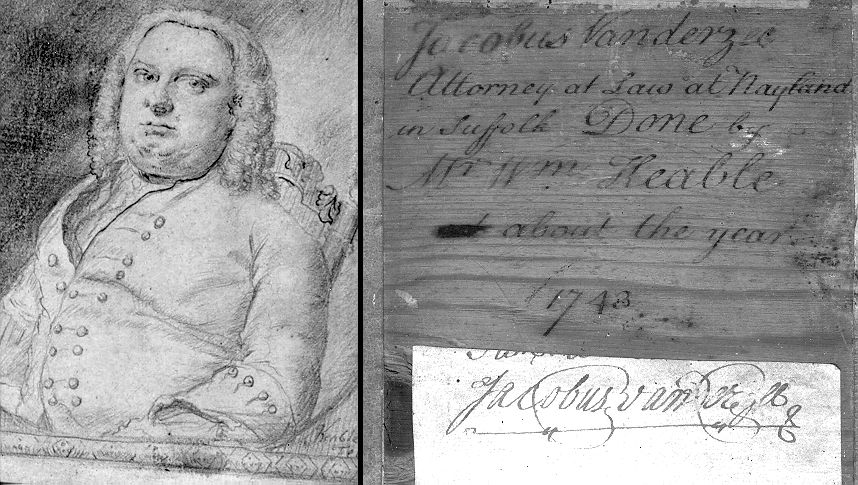 Heable
Jacobus Vanderzee
Attorney at Law at Nayland
in Suffolk Done by
Mr Wm Heable
about the year
1743
Jacobus van der Zee